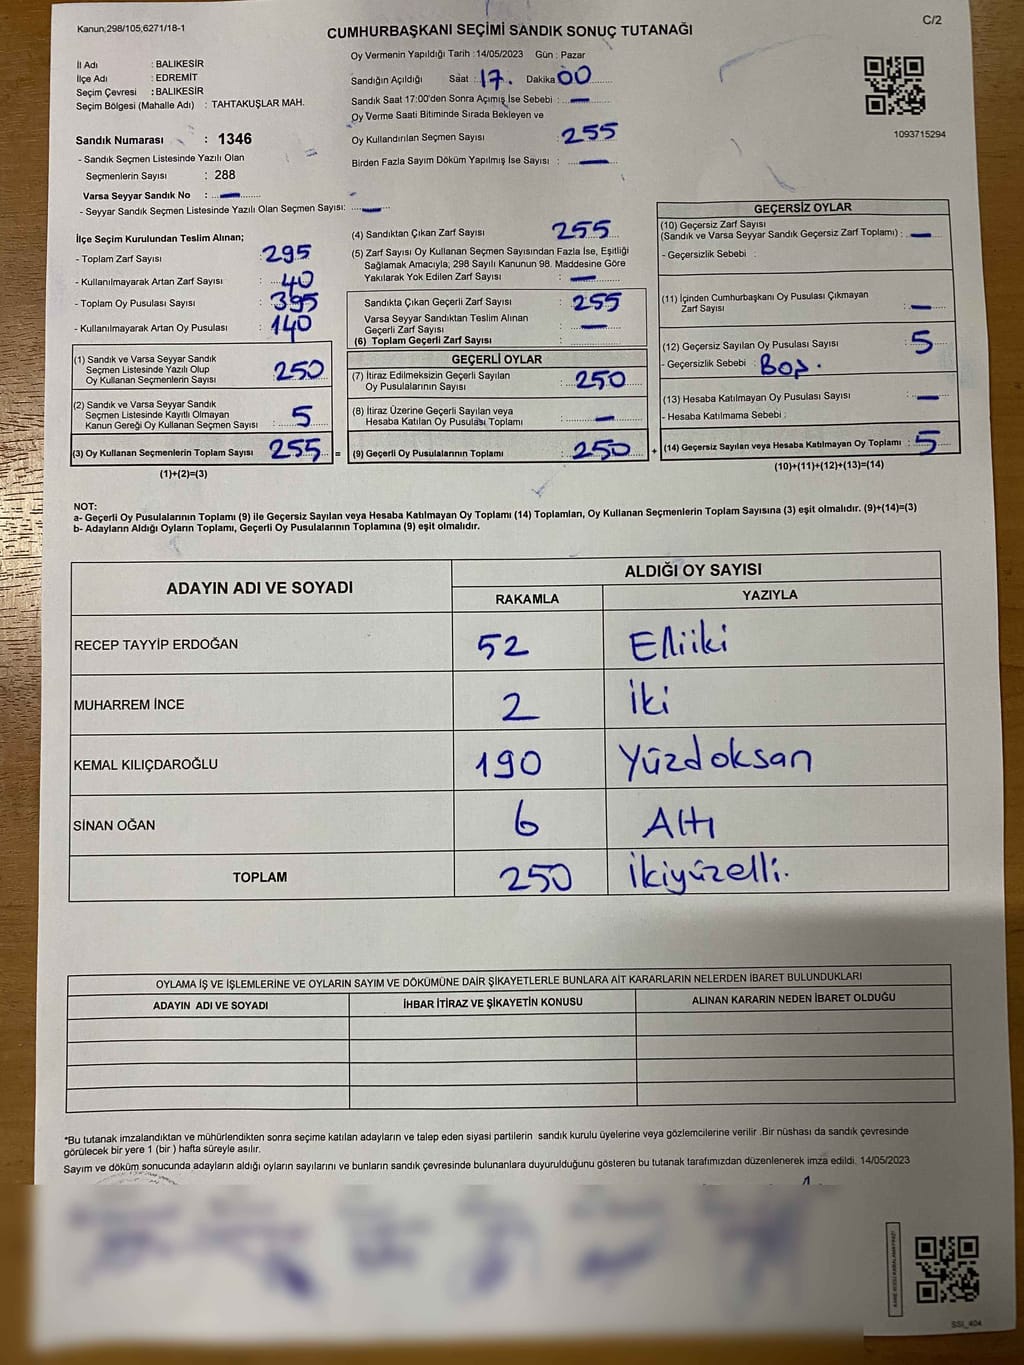 Kanun;298/105,6271/18-1
C/2
CUMHURBAŞKANI SEÇİMİ SANDIK SONUÇ TUTANAĞI
İl Adı : BALIKESİR
İlçe Adı : EDREMİT
Seçim Çevresi : BALIKESİR
Seçim Bölgesi (Mahalle Adı) : TAHTAKUŞLAR MAH.
Oy Vermenin Yapıldığı Tarih : 14/05/2023 Gün : Pazar
Sandığın Açıldığı Saat : 17. Dakika 00
Sandık Saat 17:00'den Sonra Açımış İse Sebebi : —
Oy Verme Saati Bitiminde Sırada Bekleyen ve
Oy Kullandırılan Seçmen Sayısı : 255
Birden Fazla Sayım Döküm Yapılmış İse Sayısı : —
1093715294
Sandık Numarası : 1346
- Sandık Seçmen Listesinde Yazılı Olan
Seçmenlerin Sayısı : 288
Varsa Seyyar Sandık No : —
- Seyyar Sandık Seçmen Listesinde Yazılı Olan Seçmen Sayısı: —
İlçe Seçim Kurulundan Teslim Alınan;
- Toplam Zarf Sayısı : 295
- Kullanılmayarak Artan Zarf Sayısı : 40
- Toplam Oy Pusulası Sayısı : 395
- Kullanılmayarak Artan Oy Pusulası : 140
(1) Sandık ve Varsa Seyyar Sandık
Seçmen Listesinde Yazılı Olup
Oy Kullanan Seçmenlerin Sayısı : 250
(2) Sandık ve Varsa Seyyar Sandık
Seçmen Listesinde Kayıtlı Olmayan
Kanun Gereği Oy Kullanan Seçmen Sayısı : 5
(3) Oy Kullanan Seçmenlerin Toplam Sayısı 255 =
(1)+(2)=(3)
(4) Sandıktan Çıkan Zarf Sayısı 255
(5) Zarf Sayısı Oy Kullanan Seçmen Sayısından Fazla İse, Eşitliği
Sağlamak Amacıyla, 298 Sayılı Kanunun 98. Maddesine Göre
Yakılarak Yok Edilen Zarf Sayısı : —
Sandıkta Çıkan Geçerli Zarf Sayısı : 255
Varsa Seyyar Sandıktan Teslim Alınan
Geçerli Zarf Sayısı : —
(6) Toplam Geçerli Zarf Sayısı :
GEÇERLİ OYLAR
(7) İtiraz Edilmeksizin Geçerli Sayılan
Oy Pusulalarının Sayısı : 250
(8) İtiraz Üzerine Geçerli Sayılan veya
Hesaba Katılan Oy Pusulası Toplamı : —
(9) Geçerli Oy Pusulalarının Toplamı : 250 +
GEÇERSİZ OYLAR
(10) Geçersiz Zarf Sayısı
(Sandık ve Varsa Seyyar Sandık Geçersiz Zarf Toplamı) : —
- Geçersizlik Sebebi :
(11) İçinden Cumhurbaşkanı Oy Pusulası Çıkmayan
Zarf Sayısı : —
(12) Geçersiz Sayılan Oy Pusulası Sayısı : 5
- Geçersizlik Sebebi : Boş.
(13) Hesaba Katılmayan Oy Pusulası Sayısı : —
- Hesaba Katılmama Sebebi :
(14) Geçersiz Sayılan veya Hesaba Katılmayan Oy Toplamı : 5
(10)+(11)+(12)+(13)=(14)
NOT:
a- Geçerli Oy Pusulalarının Toplamı (9) ile Geçersiz Sayılan veya Hesaba Katılmayan Oy Toplamı (14) Toplamları, Oy Kullanan Seçmenlerin Toplam Sayısına (3) eşit olmalıdır. (9)+(14)=(3)
b- Adayların Aldığı Oyların Toplamı, Geçerli Oy Pusulalarının Toplamına (9) eşit olmalıdır.
ADAYIN ADI VE SOYADI ALDIĞI OY SAYISI
RAKAMLA YAZIYLA
RECEP TAYYİP ERDOĞAN 52 Elliiki
MUHARREM İNCE 2 İki
KEMAL KILIÇDAROĞLU 190 Yüzdoksan
SİNAN OĞAN 6 Altı
TOPLAM 250 İkiyüzelli.
OYLAMA İŞ VE İŞLEMLERİNE VE OYLARIN SAYIM VE DÖKÜMÜNE DAİR ŞİKAYETLERLE BUNLARA AİT KARARLARIN NELERDEN İBARET BULUNDUKLARI
ADAYIN ADI VE SOYADI İHBAR İTİRAZ VE ŞİKAYETİN KONUSU ALINAN KARARIN NEDEN İBARET OLDUĞU
*Bu tutanak imzalandıktan ve mühürlendikten sonra seçime katılan adayların ve talep eden siyasi partilerin sandık kurulu üyelerine veya gözlemcilerine verilir .Bir nüshası da sandık çevresinde
görülecek bir yere 1 (bir ) hafta süreyle asılır.
Sayım ve döküm sonucunda adayların aldığı oyların sayılarını ve bunların sandık çevresinde bulunanlara duyurulduğunu gösteren bu tutanak tarafımızdan düzenlenerek imza edildi. 14/05/2023
SSI_404